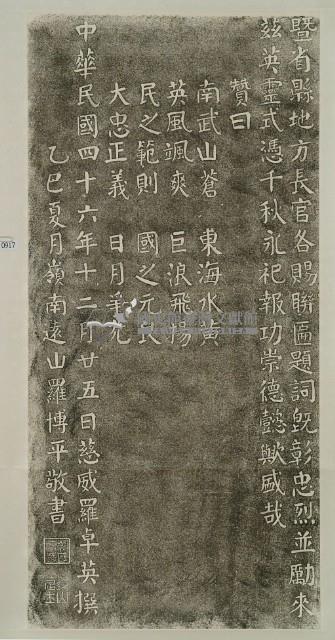 暨省縣地方長官各賜聯匾題詞既彰忠烈並勵來
茲英靈式憑千秋永祀報功崇德懿歟盛哉
贊曰
南武山蒼 東海水黃
英風颯爽 巨浪飛揚
民之範則 國之元良
大忠正義 日月爭光
中華民國四十六年十二月廿五日慈威羅卓英撰
乙巳夏月嶺南遠山羅博平敬書
0917